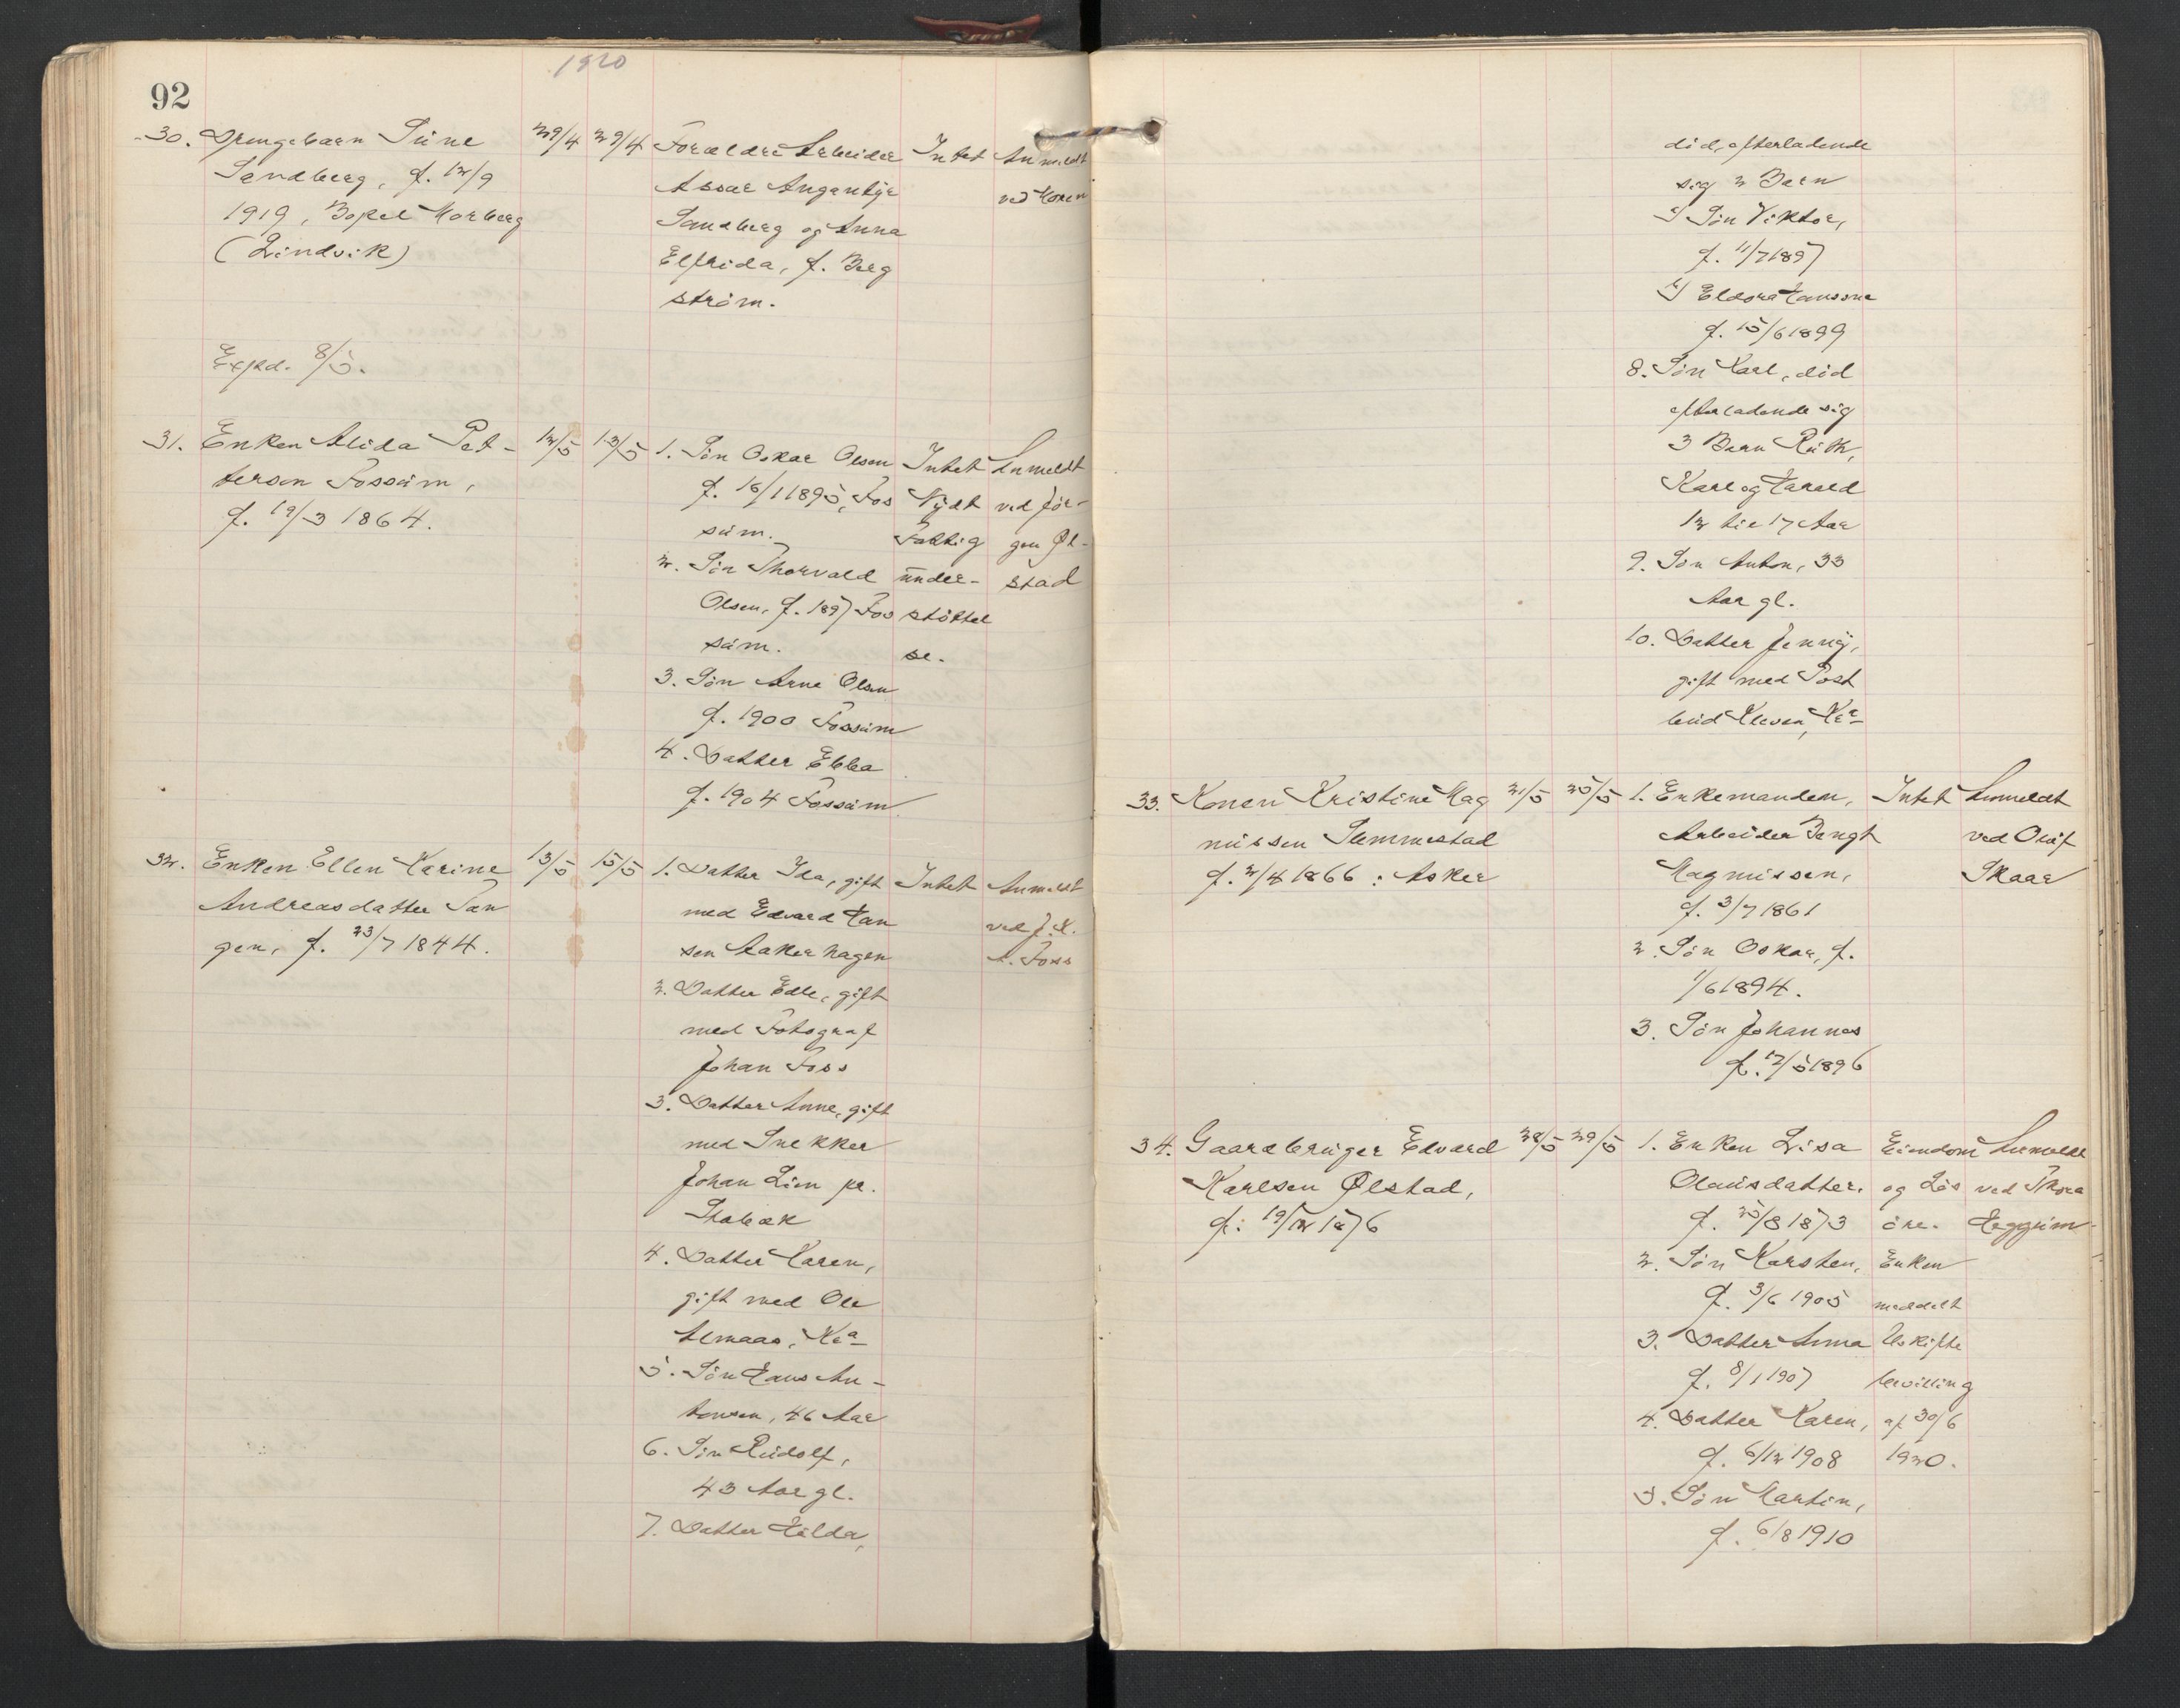 92
1920
30. Drengebarn Süne
Sandberg, f. 12/9
1919, Bopel Morberg
(Lindvik)
Expd. 8/5.
29/4 29/4
Forældre Arbeider
Assar Angantyr
Sandberg og Anna
Elfrida, f. Berg
ström.
Intet
Anmeldt
ved Moren
31. Enken Alida Pet-
terson Fossüm,
f. 19/3 1864.
12/5 13/5
1. Sön Oskar Olsen
f. 16/1 1895, Fos
süm.
2. Sön Thorvald
Olsen, f. 1897 Fos
süm.
3. Sön Arne Olsen
f. 1900 Fossüm
4. Datter Ebba
f. 1904 Fossüm
Intet
Nydt
Fattig
ünder-
stöttel
se.
Anmeldt
ved Jör-
gen Øl-
stad
32. Enken Ellen Karine
Andreasdatter Tan
gen, f. 23/7 1844.
13/5 15/5
1. Datter Ida, gift
med Edvard Han
sen Aakerhagen
2. Datter Edle, gift
med Fotograf
Johan Foss
3. Datter Anne, gift
med Snekker
Johan Lien pr.
Stabæk
4. Datter Karen,
gift med Ole
Almaas, Kra
5. Sön Hans An-
tonsen, 46 Aar
6. Sön Rüdolf,
43 Aar gl.
7. Datter Hilda,
Intet
Anmeldt
ved J. K.
A. Foss
död, efterladende
sig 2 Barn
Sön Viktor,
f. 11/7 1897
Eldora Hansine
f. 15/6 1899
8. Sön Karl, död
efterladende sig
3 Barn Rüth,
Karl og Harald
12 til 17 Aar
9. Sön Anton, 33
Aar gl.
10. Datter Jenny,
gift med Post
büd Kleven, Kra
33. Konen Kristine Mag
nüssen Slemmestad
f. 2/4 1866 : Asker
21/5 25/5
1. Enkemanden,
Arbeider Bengt
Magnüssen,
f. 3/7 1861
2. Sön Oskar, f.
1/6 1894.
3. Sön Johannes
f. 17/5 1896
Intet
Anmeldt
ved Olaf
Skaar
34. Gaardbrüger Edvard
Karlsen Ølstad,
f. 19/12 1876
28/5 29/5
1. Enken Lisa
Olaüsdatter.
f. 25/8 1873
2. Sön Karsten,
f. 3/6 1905
3. Datter Anna
f. 8/1 1907
4. Datter Karen,
f. 6/12 1908
5. Sön Martin,
f. 6/8 1910
Eiendom
og Lös
öre.
Enken
meddelt
Uskifte
bevilling
af 30/6
1920.
Anmeldt
ved Thora
Heggüm